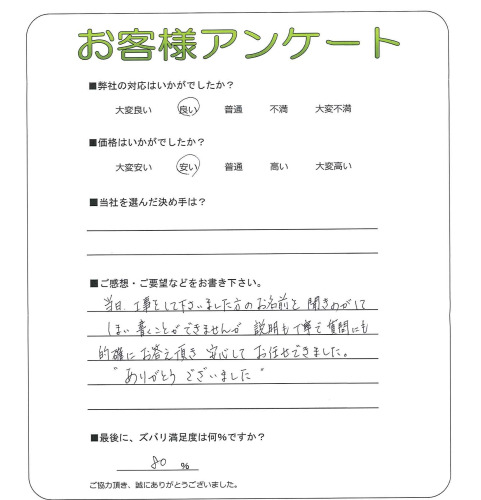 お客様アンケート
■弊社の対応はいかがでしたか？
大変良い 良い 普通 不満 大変不満
■価格はいかがでしたか？
大変安い 安い 普通 高い 大変高い
■当社を選んだ決め手は？
■ご感想・ご要望などをお書き下さい。
当日、工事をして下さいました方のお名前を 聞きのがして
しまい 書くことができませんが 説明も丁寧で質問にも
的確に お答え頂き 安心して お任せできました。
"ありがとう ございました"
■最後に、ズバリ満足度は何%ですか？
80 %
ご協力頂き、誠にありがとうございました。